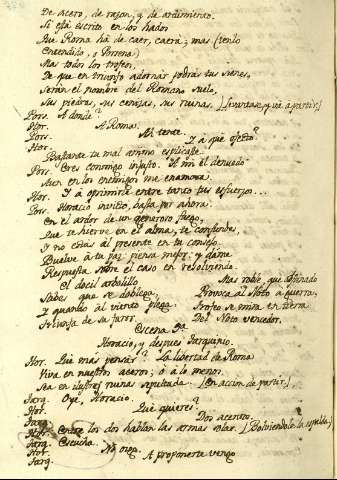 De acero, de razon, y de ardimiento.
Si està escrito en los hados
Que Roma hà de caer, caerà; mas (tenlo
Entendido, o Porsena)
Mas todos los trofeos,
De que en triunfo adornar podràs tus sienes,
Seràn el nombre del Romano suelo,
Sus piedras, sus cenizas, sus ruinas. (Levantase, y và à partir)
Pors. A donde?
Hor. A Roma.
Pors. Ah tente.
Hor. Y à que efecto?
Bastante tu mal animo esplicaste.
Pors. Eres conmigo injusto. A mi el denuedo
Aun en los enemigos me enamora.
Hor. Y à oprimirla entre tanto tus esfuerzos...
Pors. Horacio invicto, basta por ahora:
En el ardor de un generoso fuego,
Que te hierve en el alma, te confundes,
Y no estàs al presente en tu consejo.
Buelve à tu paz piensa mejor; y dàme
Respuesta sobre el caso en resolviendo.
El docil arbolillo
Sabes que se doblega,
Y quando al viento plega
Triunfa de su furor.
Mas roble, que obstinado
Provoca al Noto à guerra,
Trofeo se mira en tierra
Del Noto vencedor.
Escena 5ª
Horacio, y despues Tarquinio.
Hor. Que mas pensar? La libertad de Roma
Viva en nuestros aceros; ò à lo menos
Sea en ilustres ruinas sepultada. (En accion de partir)
Tarq. Oye, Horacio.
Hor. Que quieres?
Tarq. Dos acentos.
Hor. Entre los dos hablen las armas solas. (Bolviendole la espalda)
Tarq. Escucha.
Hor. No oygo.
Tarq. A proponerte vengo